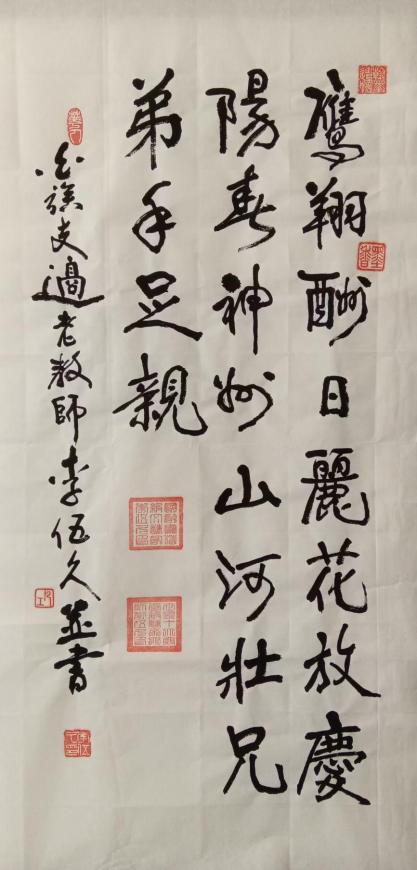 鷹翔酬日麗花放慶
陽春神州山河壯兄
弟手足親
支邊老教師李伍久並書